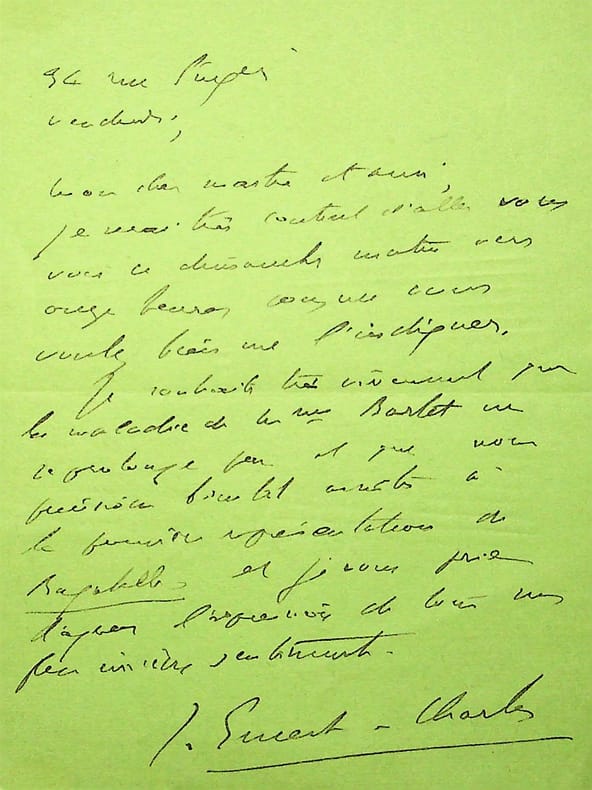 34 rue
vendredi,
mon cher maître et ami,
je serai très content d'aller vous
voir ce dimanche matin vers
onze heures comme vous
voulez bien me l'indiquer.
Je souhaite très vivement que
la maladie de Mme Bartet ne
se prolonge pas et que nous
puissions bientôt assister à
la première représentation de
Bagatelle et je vous prie
d'agréer l'expression de tous mes
plus sincères sentiments.
J. Ernest-Charles